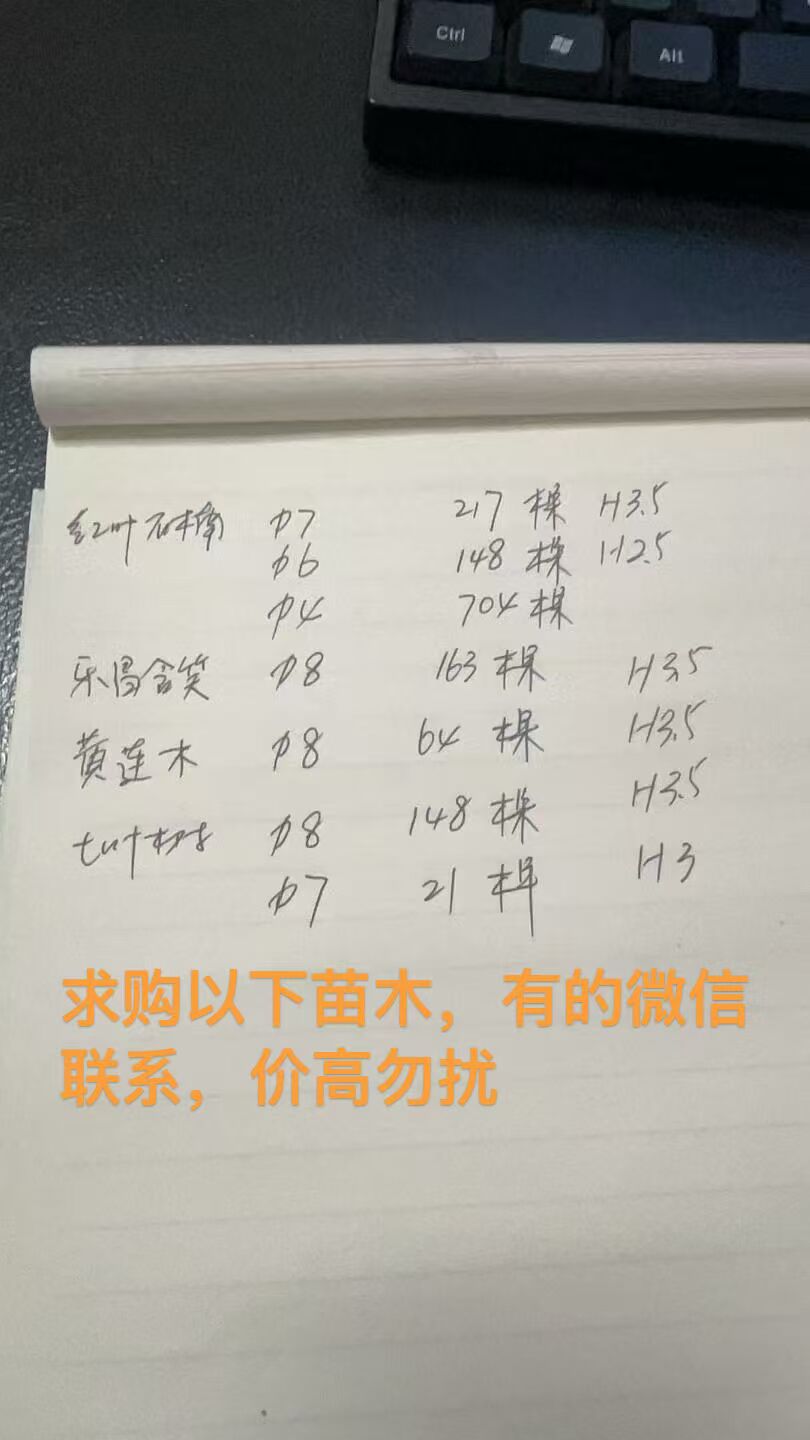 Ctrl
Alt
红叶石楠 φ7 217 棵 H3.5
φ6 148 棵 H2.5
φ4 704 棵
乐昌含笑 φ8 163 棵 H3.5
黄连木 φ8 64 棵 H3.5
φ8 148 棵 H3.5
φ7 21 棵 H3
求购以下苗木，有的微信
联系，价高勿扰